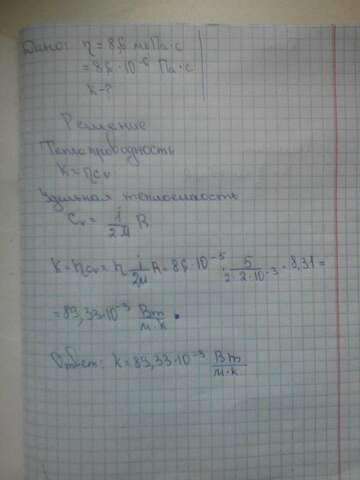 Дано: η = 8,6 мкПа·с
= 8,6·10⁻⁶ Па·с
k-?
Решение
Теплопроводность
k = ηcᵥ
Удельная теплоемкость
Cᵥ = i/2μ R
k = ηcᵥ = η i/2μ R = 8,6·10⁻⁶ · 5/2·2·10⁻³ · 8,31 =
= 89,33·10⁻³ Вт/м·к.
Ответ: k = 89,33·10⁻³ Вт/м·к